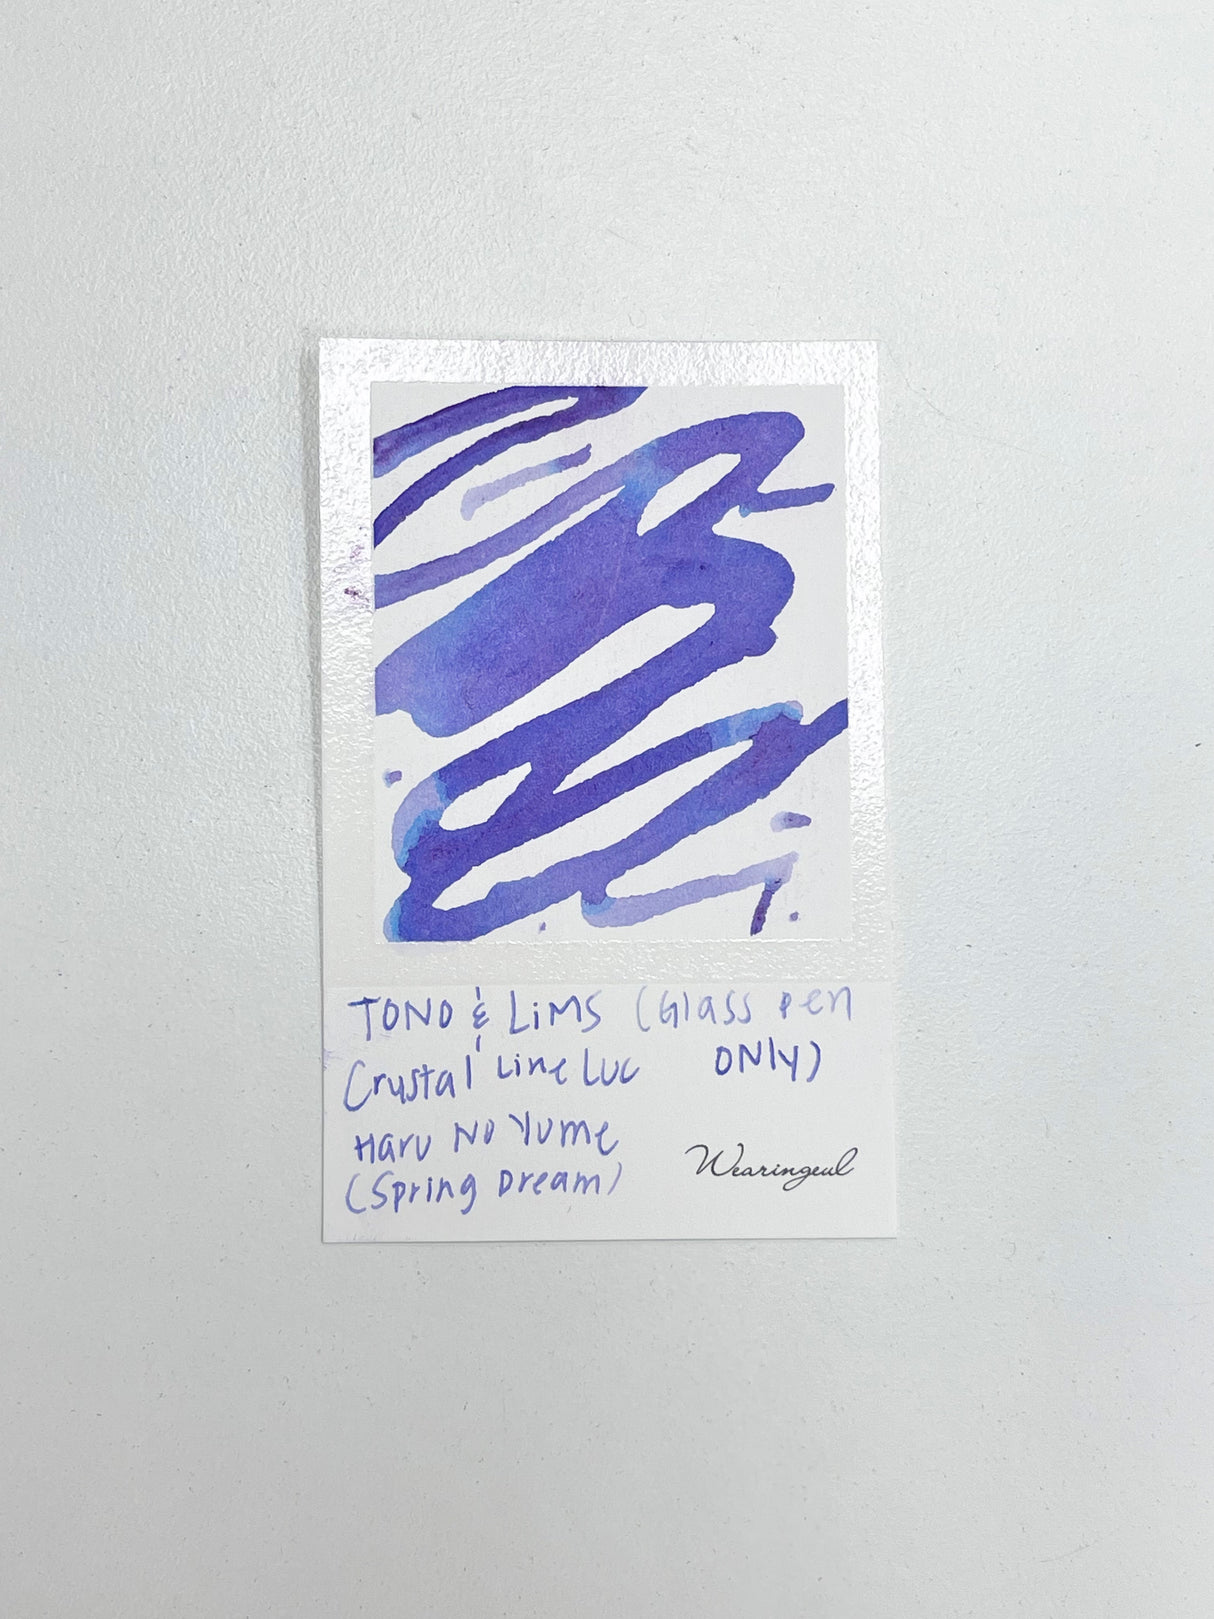 TONO & LiMS (Glass pen
ONLY)
Crystal Line Luc
Haru No Yume
(Spring Dream)
Wearingeul